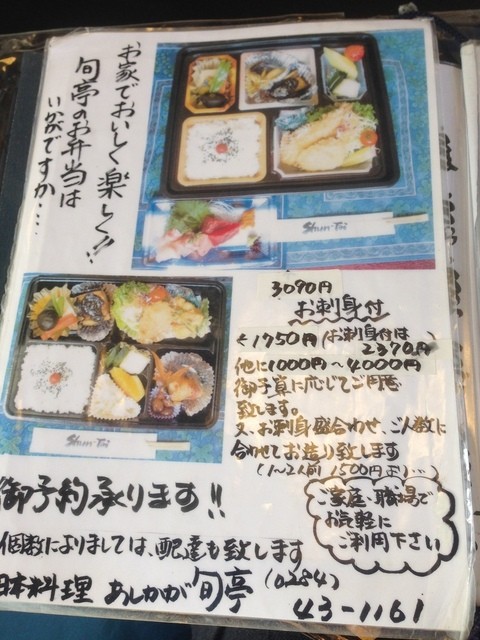 お家でおいしく楽しく!!
旬亭のお弁当は
いかがですか…
Shun-Tei
3090円
お刺身付
Shun-Tei
←1750円(お刺身付は
2370円
他に1000円〜4000円
御予算に応じてご用意
致します。
又、お刺身盛合わせ、ご人数に
合わせてお造り致します
(1〜2人前 1500円より…)
御予約承ります!!
ご家庭・職場で
お気軽に
ご利用下さい
個数によりましては、配達も致します
日本料理 あしかが旬亭 (0284)
43-1161